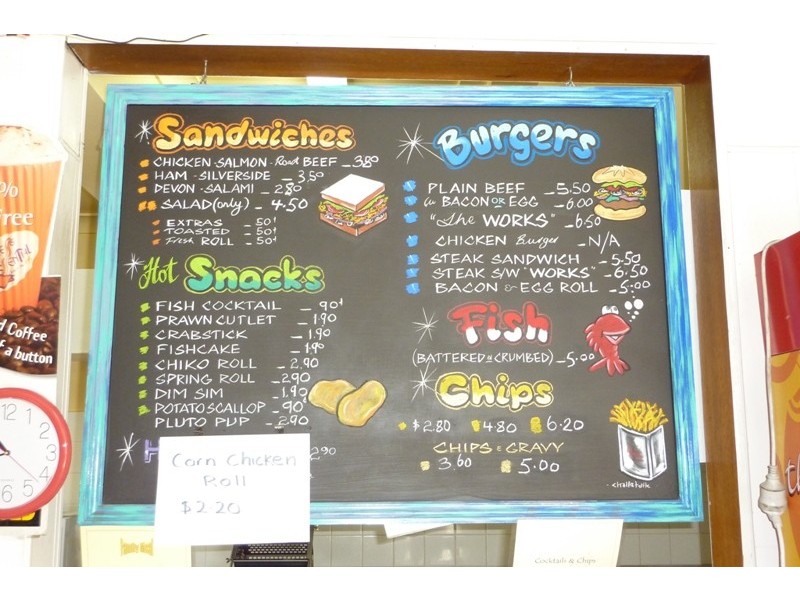 Sandwiches
CHICKEN-SALMON-Roast BEEF _ 3.80
HAM - SILVERSIDE _ 3.50
DEVON-SALAMI _ 2.80
SALAD (only) _ 4.50
EXTRAS _ 50¢
TOASTED _ 50¢
Fresh ROLL _ 50¢
Hot Snacks
FISH COCKTAIL _ 90¢
PRAWN CUTLET _ 1.90
CRABSTICK _ 1.90
FISHCAKE _ 1.90
CHIKO ROLL _ 2.90
SPRING ROLL _ 2.90
DIM SIM _ 1.90
POTATO SCALLOP _ 90¢
PLUTO PUP _ 2.90
2.90
Corn Chicken
Roll
$2.20
Burgers
PLAIN BEEF _ 5.50
w BACON OR EGG _ 6.00
"The WORKS" _ 6.50
CHICKEN Burger _ N/A
STEAK SANDWICH _ 5.50
STEAK S/W "WORKS" _ 6.50
BACON & EGG ROLL _ 5.00
Fish
(BATTERED or CRUMBED) _ 5.00
Chips
$2.80 4.80 6.20
CHIPS & GRAVY
3.60 5.00
Coffee
f a button
12
1
2
3
4
5
6
Cocktails & Chips